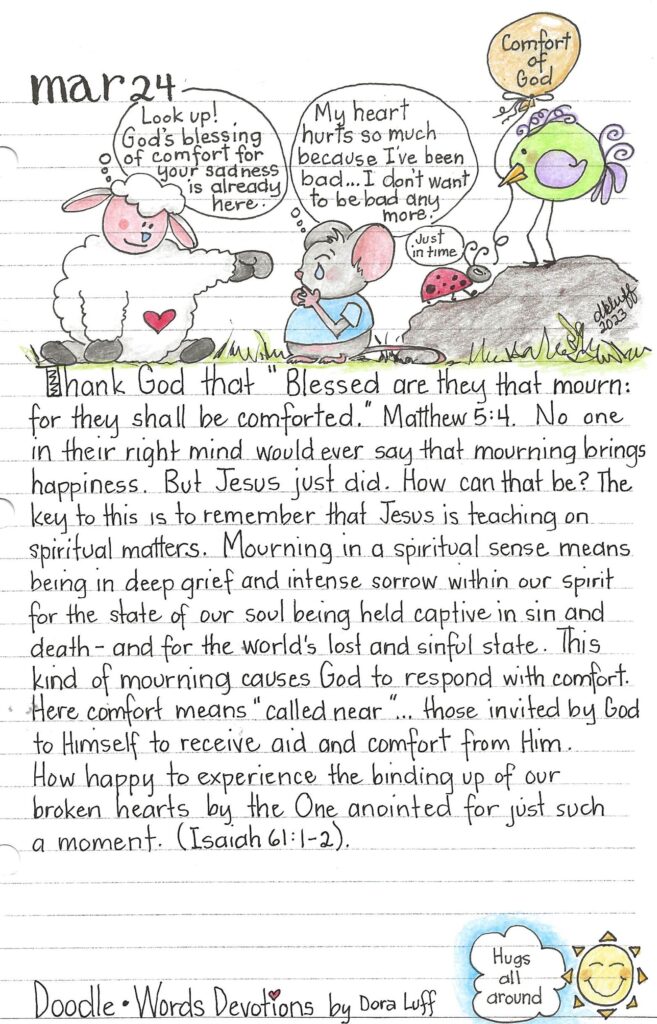 mar 24
Comfort
of
God
Look up!
God's blessing
of comfort for
your sadness
is already
here.
My heart
hurts so much
because I've been
bad... I don't want
to be bad any
more.
Just
in time
dkluff
2023
Thank God that "Blessed are they that mourn:
for they shall be comforted." Matthew 5:4. No one
in their right mind would ever say that mourning brings
happiness. But Jesus just did. How can that be? The
key to this is to remember that Jesus is teaching on
spiritual matters. Mourning in a spiritual sense means
being in deep grief and intense sorrow within our spirit
for the state of our soul being held captive in sin and
death - and for the world's lost and sinful state. This
kind of mourning causes God to respond with comfort.
Here comfort means "called near"... those invited by God
to Himself to receive aid and comfort from Him.
How happy to experience the binding up of our
broken hearts by the One anointed for just such
a moment. (Isaiah 61:1-2).
Hugs
all
around
Doodle • Words Devotions by Dora Luff